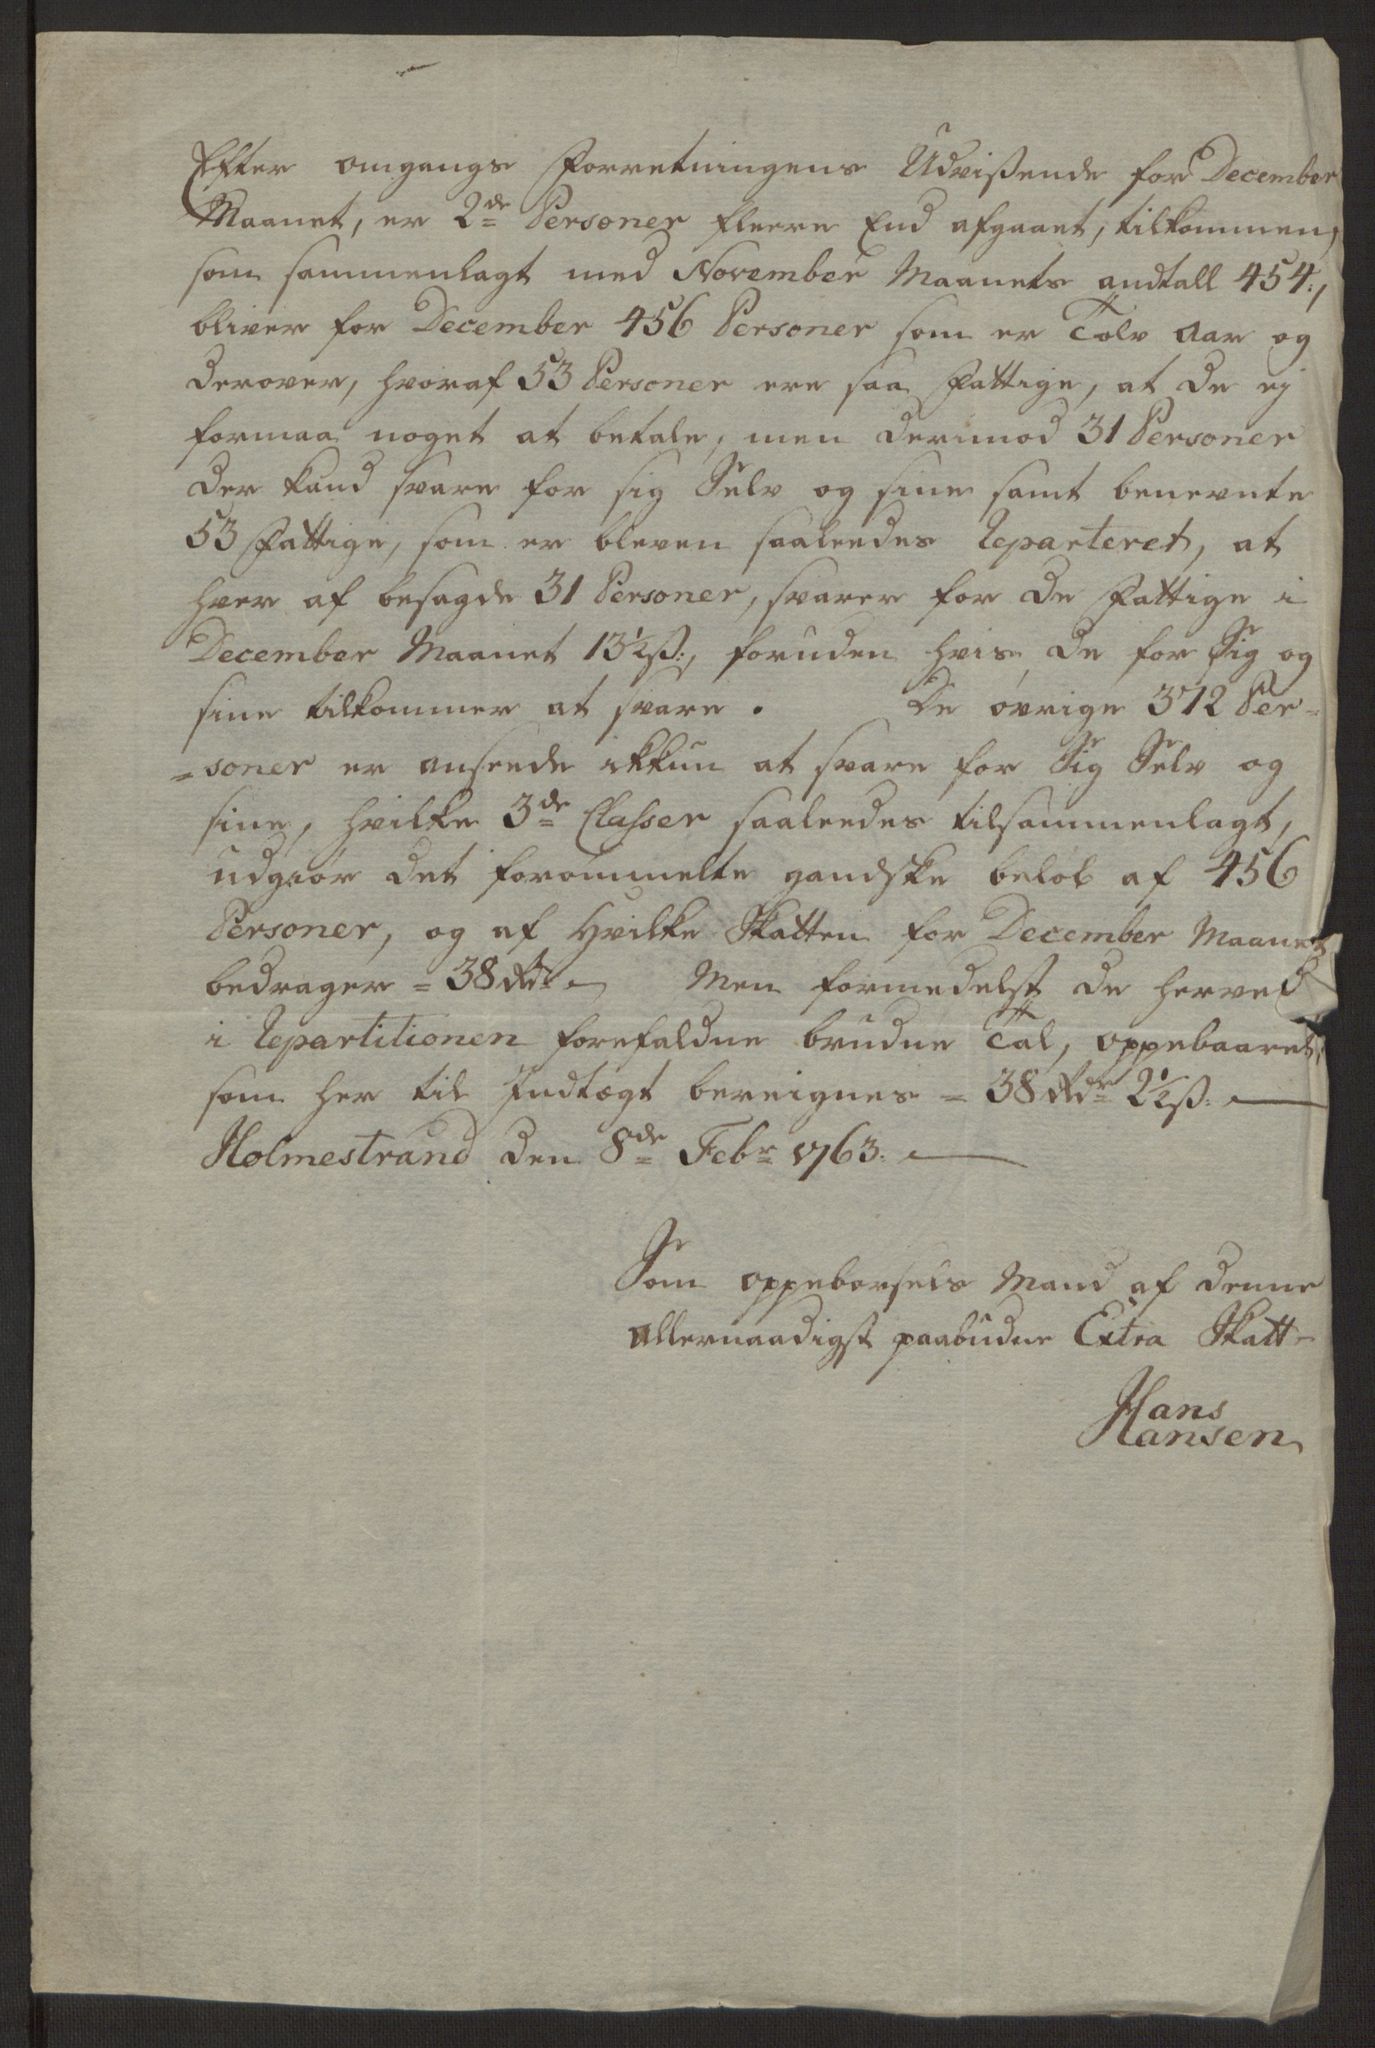 Efter omgangs Forretningens Udvißende for December
Maanet, er 2de Personer fleere End afgaaet, tilkommen,
som sammenlagt med November Maanets andtall 454.,
bliver for December 456 Personer som er Tolv Aar og
derover, hvoraf 53 Personer ere saa Fattige, at de ej
formaa noget at betale, men derimod 31 Personer
der kand svare for sig Selv og sine samt benevnte
53 Fattige, som er bleven saaleedes Reparteret, at
hver af besagde 31 Personer, svarer for de Fattige i
December Maanet 13½ß:, foruden hvis de for Sig og
sine tilkommer at svare. De øvrige 372 Per=
=soner er ansende ikkun at svare for Sig Selv og
sine, hvilke 3de Classer saaleedes tilsammenlagt,
udgiør det forommelte gandske beløb af 456
Personer, og af Hvilke Skatten for December Maanet
bedrager = 38 Rdr Men formedelst de herved
i Repartitionen forefaldne brudne Tal, oppebaaret,
som her til Indtægt bereignes = 38 Rdr 2½ß. —
Holmestrand den 8de Febr 1763. —
Som oppebørsels Mand af denne
allernaadigst paabudne Extra Skatt
Hans
Hansen